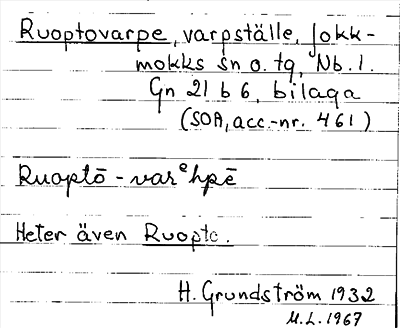 Ruoptovarpe, varpställe, Jokk-
mokks sn o. tg, Nb. l.
Gn 21 b 6, bilaga
(SOA, acc.-nr. 461)
Ruoptō - varᵉhpē
Heter även Ruopto.
H. Grundström 1932
M.L. 1967